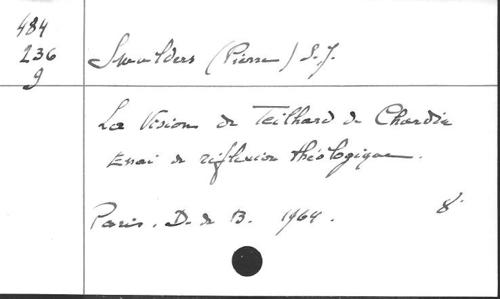 484
236
9
Smulders (Pierre) S.J.
La Vision de Teilhard de Chardin
Essai de réflexion théologique.
Paris. D. de B. 1964. 8°